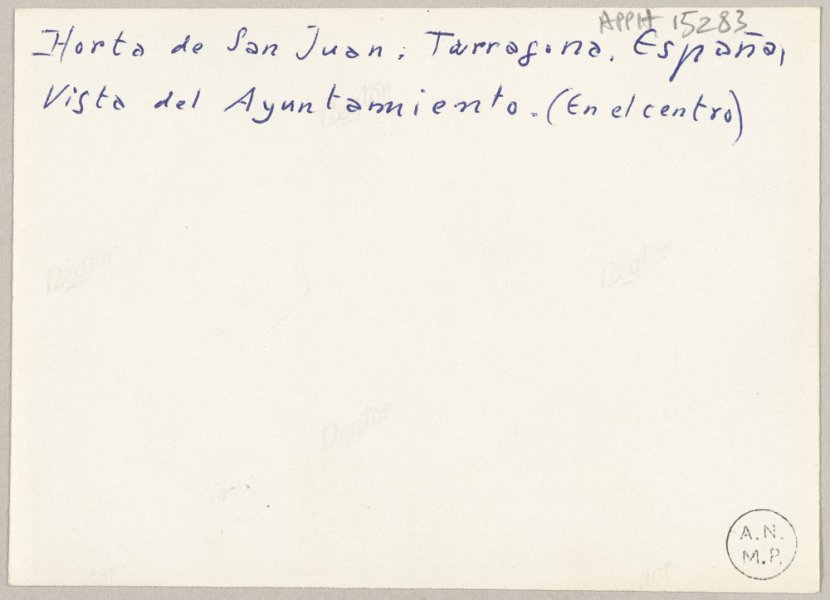 APPH 15283
Horta de San Juan. Tarragona. España,
Vista del Ayuntamiento. (En el centro)
A.N.
M.P.